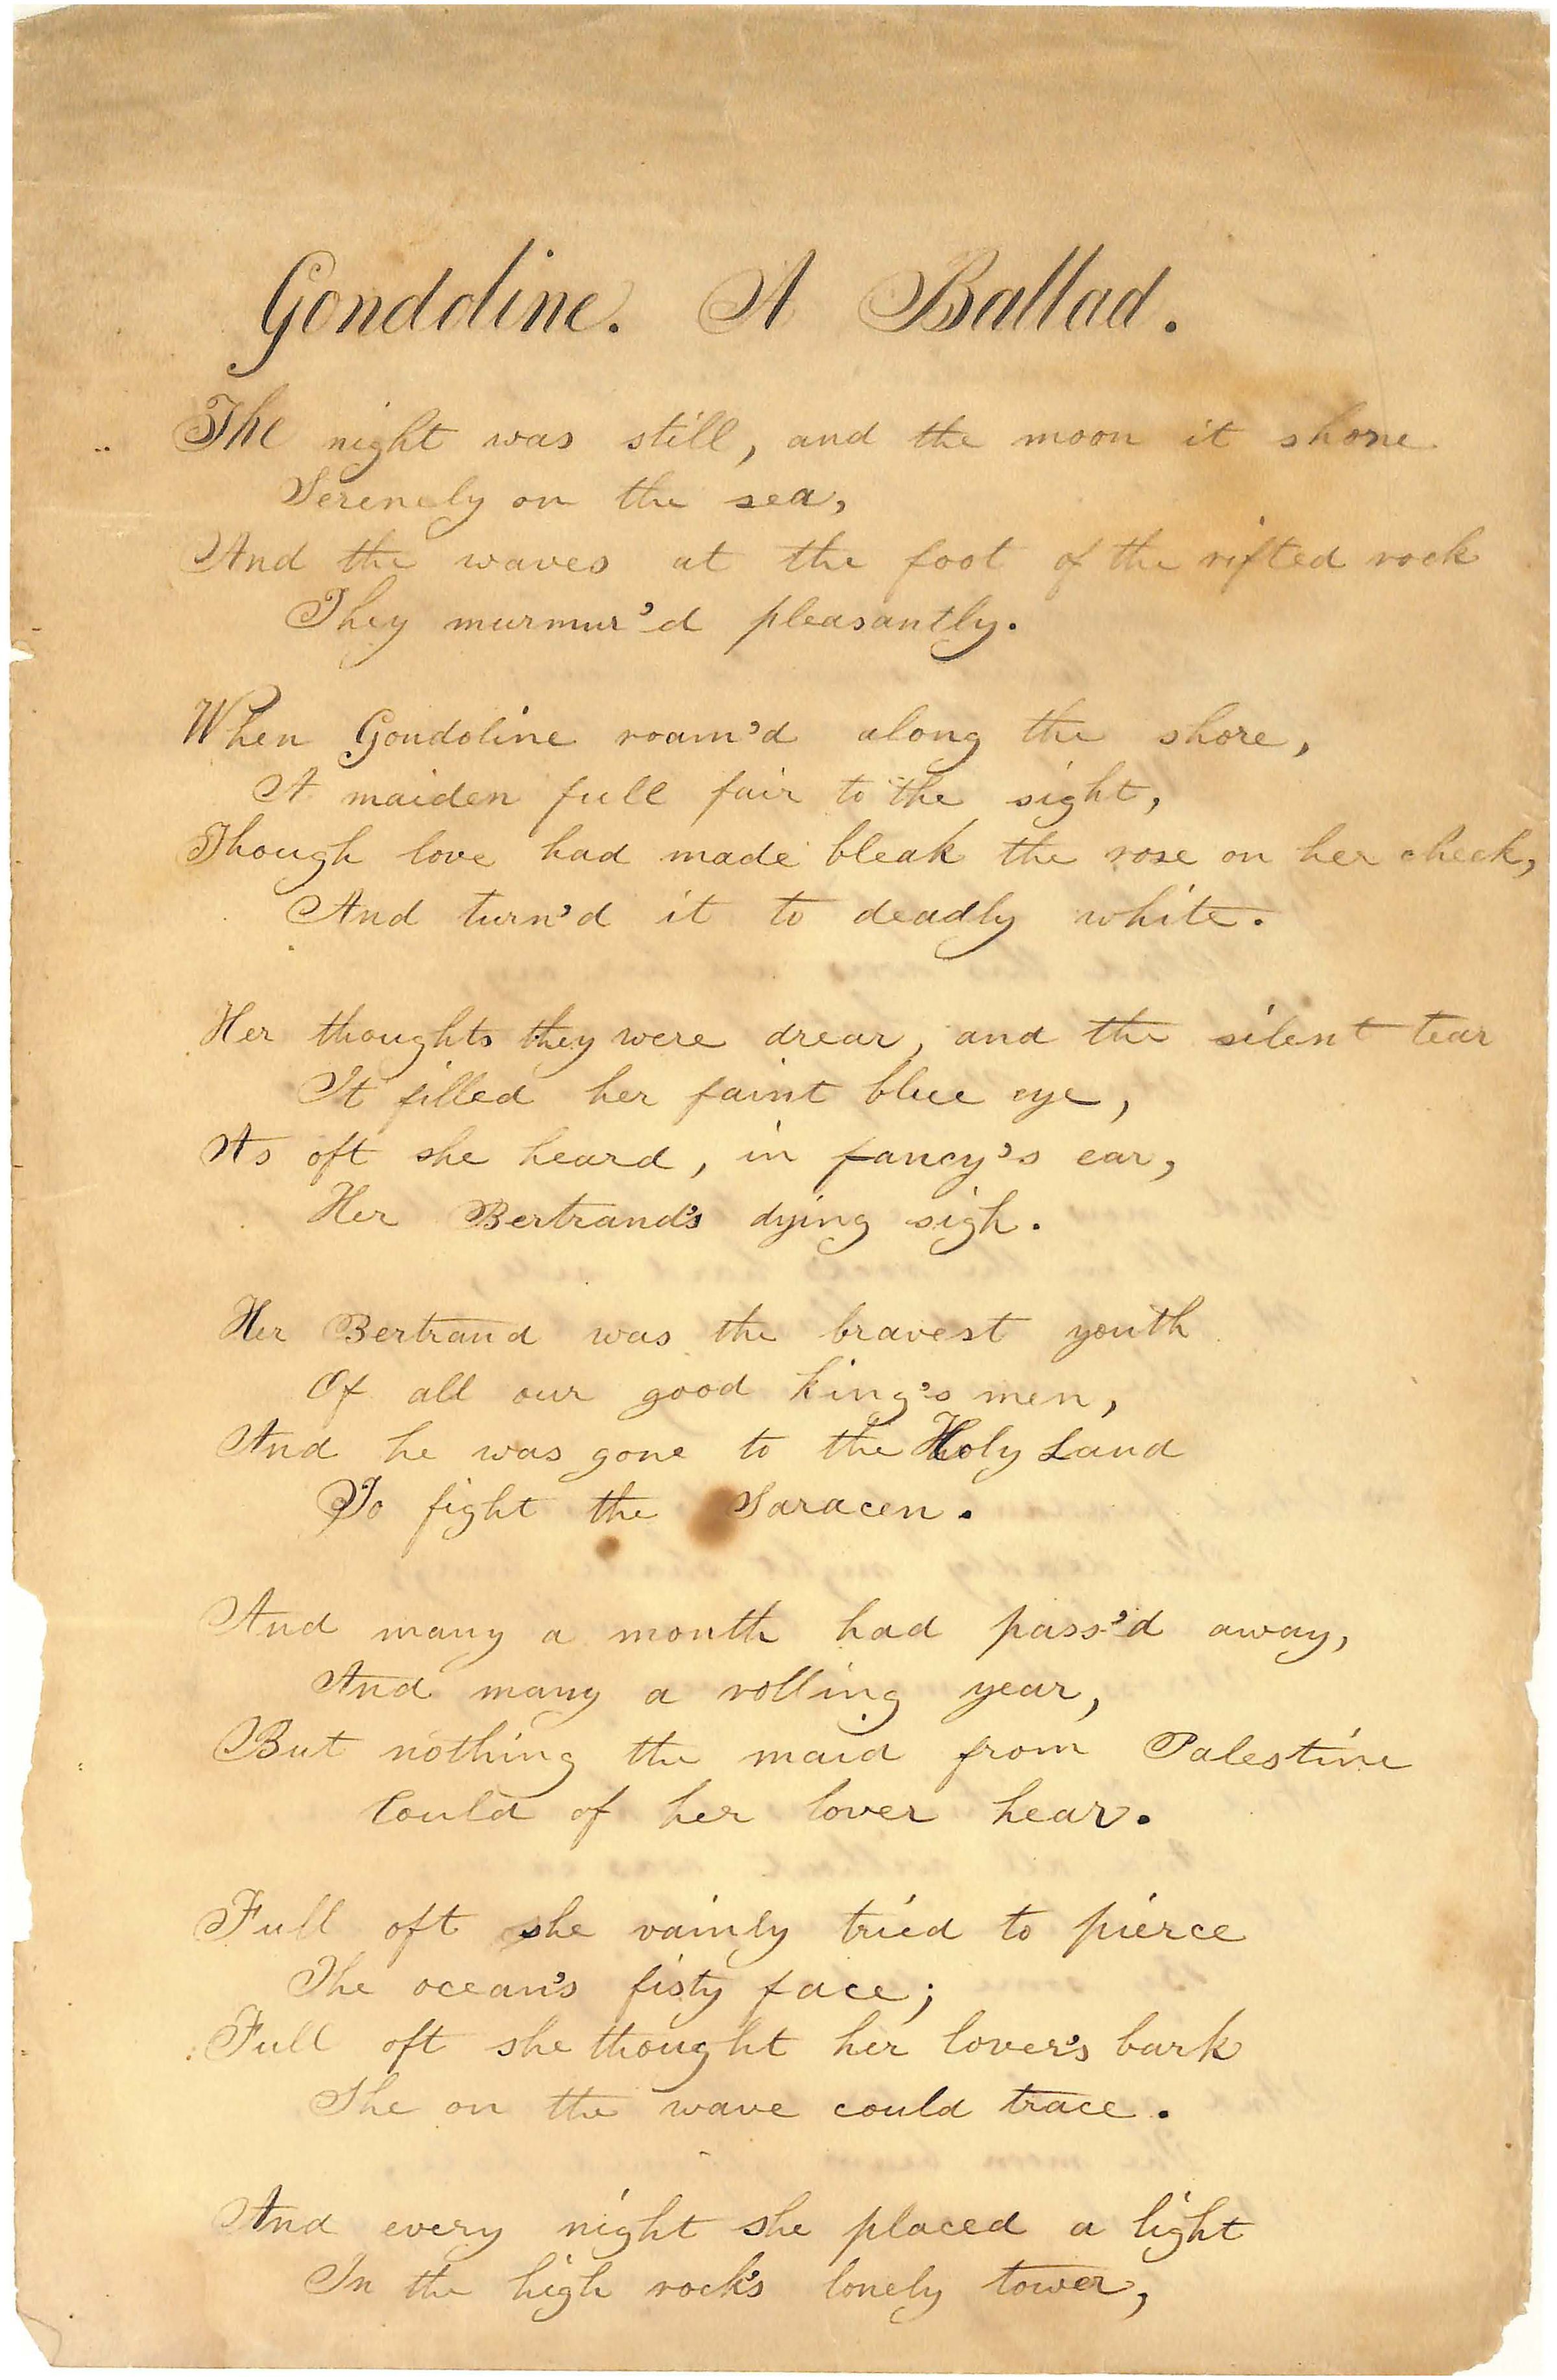 Gondoline. A Ballad.
The night was still, and the moon it shone
Serenely on the sea,
And the waves at the foot of the rifted rock
They murmur'd pleasantly.
When Gondoline roam'd along the shore,
A maiden full fair to the sight,
Though love had made bleak the rose on her cheek,
And turn'd it to deadly white.
Her thoughts they were drear, and the silent tear
It filled her faint blue eye,
As oft she heard, in fancy's ear,
Her Bertrand's dying sigh.
Her Bertrand was the bravest youth
Of all our good king's men,
And he was gone to the Holy Land
To fight the Saracen.
And many a month had pass'd away,
And many a rolling year,
But nothing the maid from Palestine
Could of her lover hear.
Full oft she vainly tried to pierce
The ocean's fisty face;
Full oft she thought her lover's bark
She on the wave could trace.
And every night she placed a light
In the high rock's lonely tower,